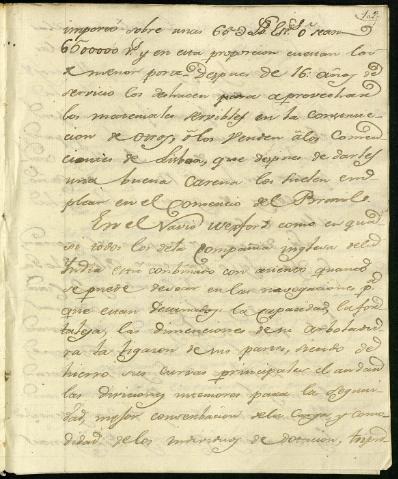 importó sobre unas 60 @ de Lb. Est.s ó sean
6000000 r.s y en esta proporcion cuestan los
de menor porte. despues de 16. años de
servicio los deshacen para aprovechar
los materiales servibles en la construc-
cion de otros, ó los venden á los Comer-
ciantes de Lisboa, que despues de darles
una buena Carena los suelen em-
plear en el Comercio del Brasil.
En el Navio Wexford como en qua-
si todos los de la Compañia inglesa de la
India está combinado con quanto
se puede desear en las navegaciones p.a
que estan destinados, la capacidad, la for-
taleza, las dimensiones de su arboladu-
ra la ligazon de sus partes, siendo de
hierro sus curvas principales
las diviciones interiores para la seguri-
dad, mejor conservacion de la Carga y como-
didad de los individuos de dotacion,